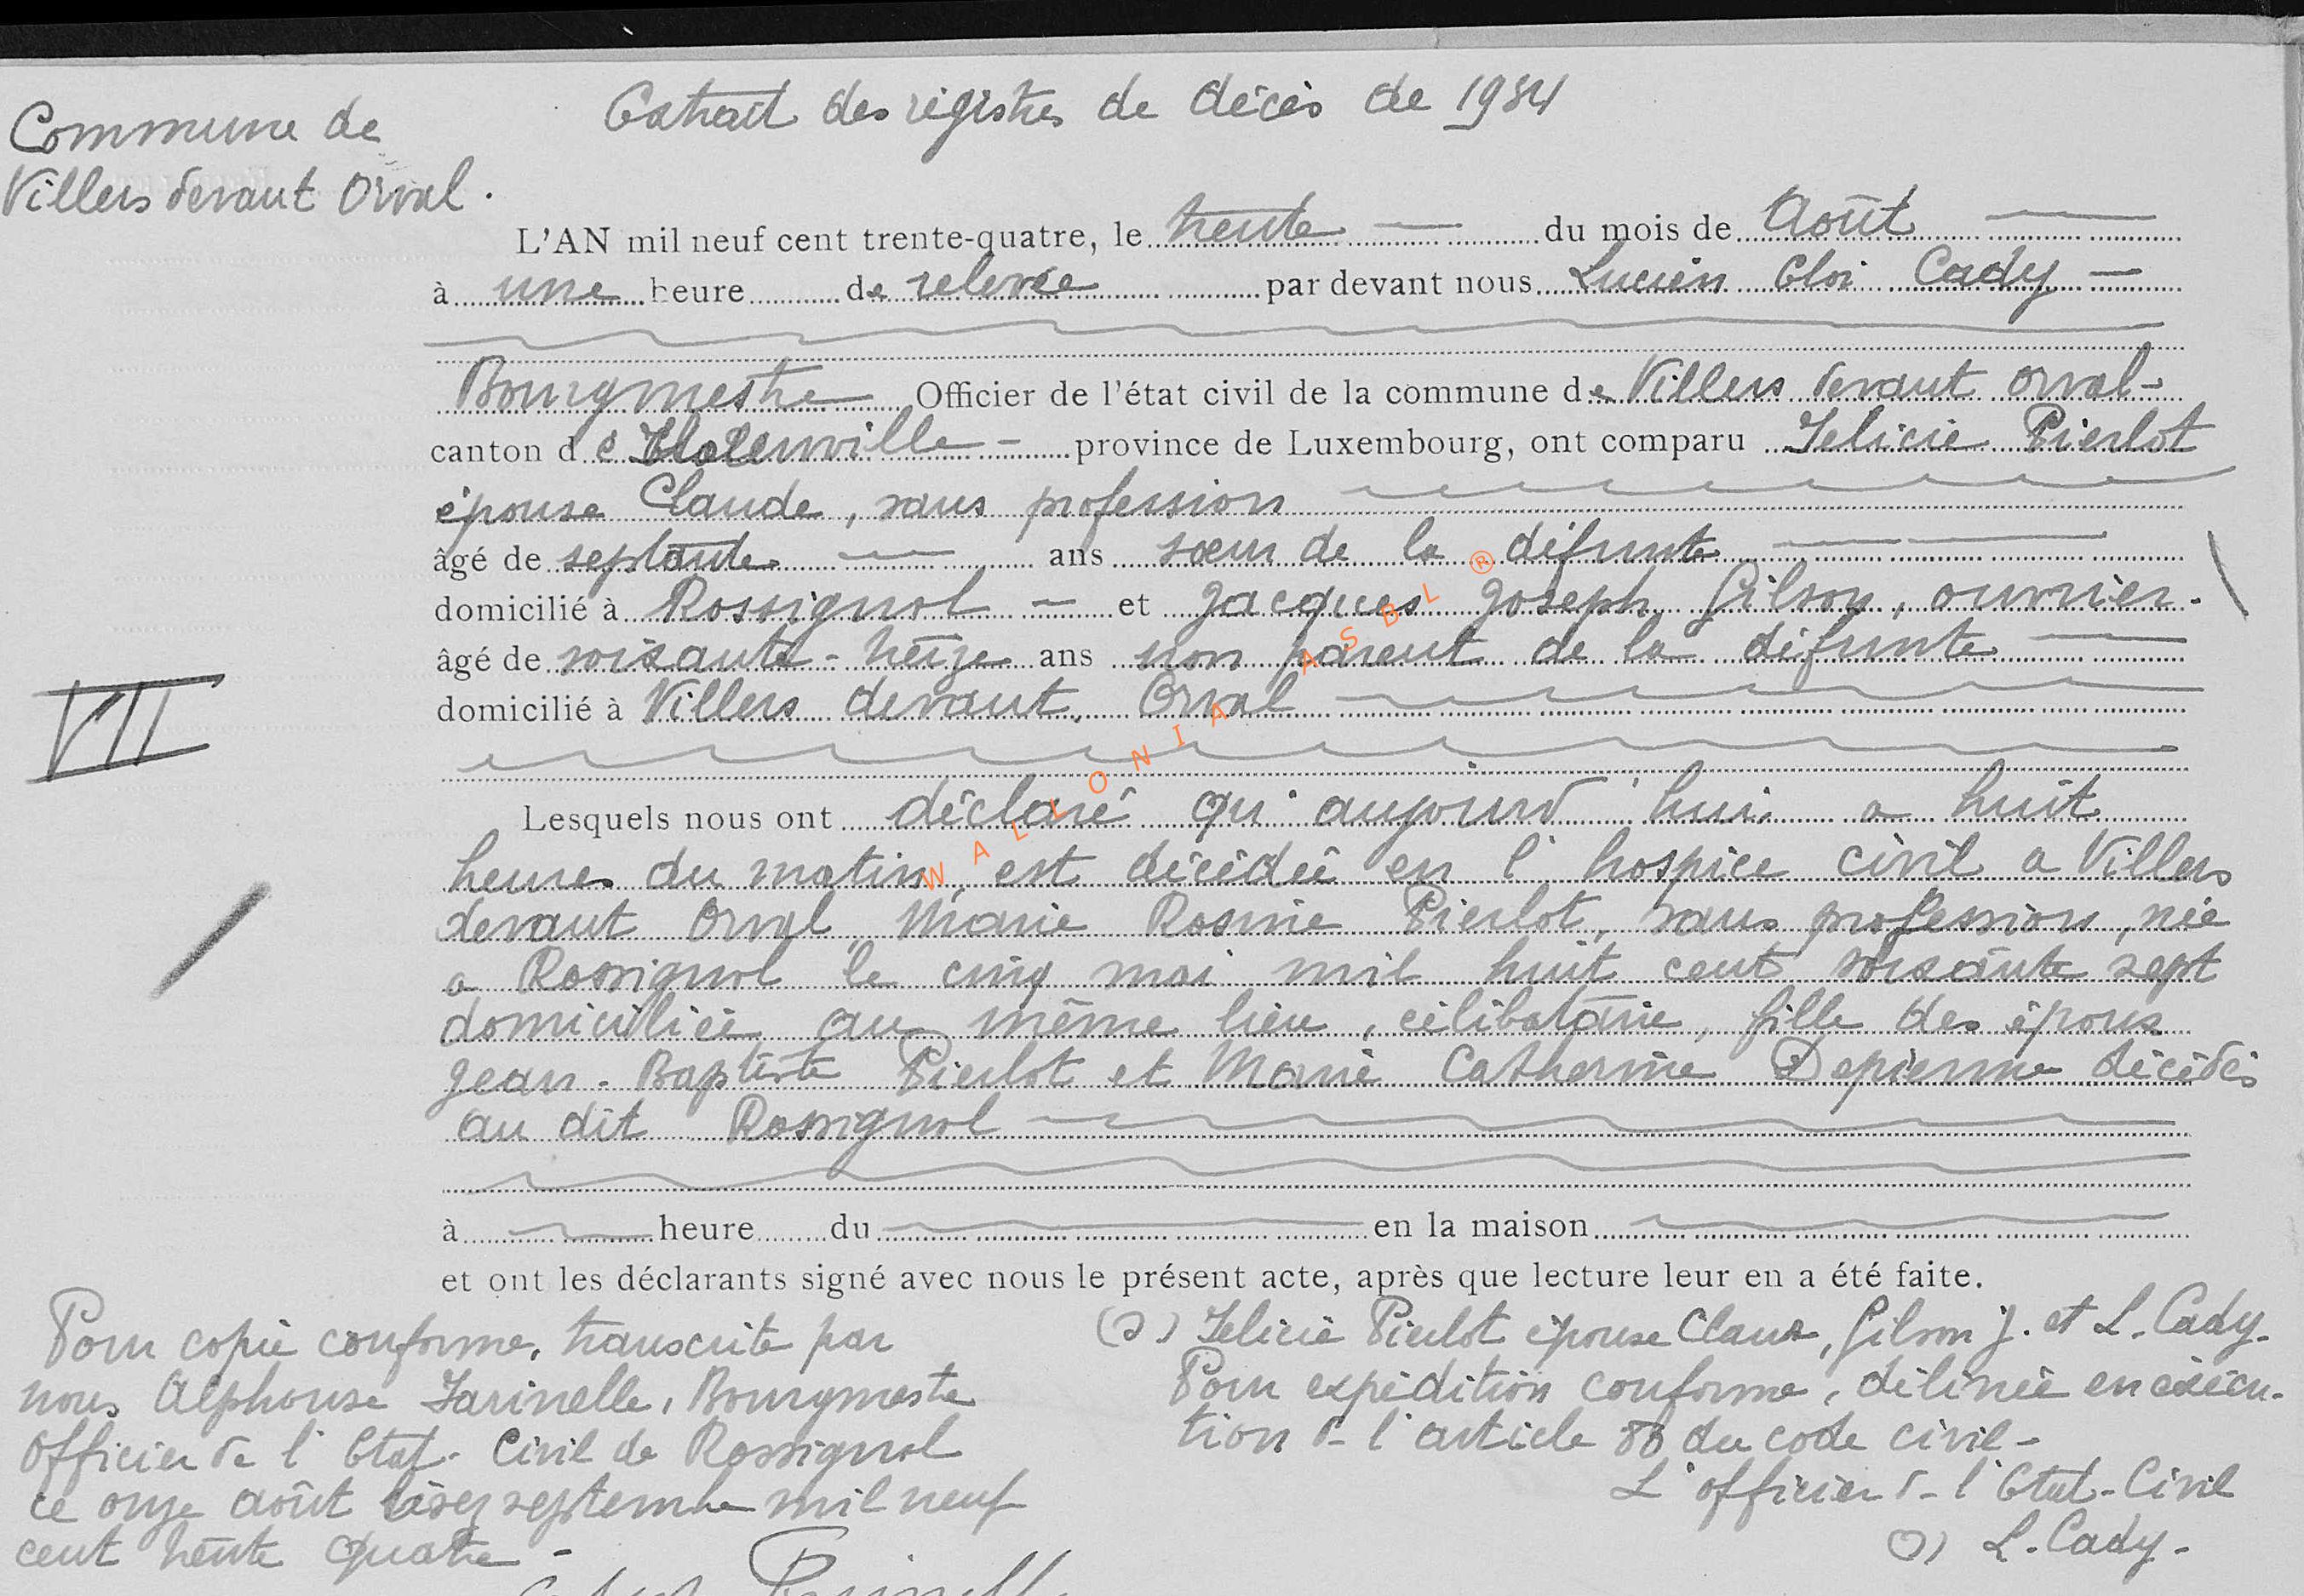 Commune de
Villers devant Orval.
Extrait des registres de décès de 1934
L'AN mil neuf cent trente-quatre, le trente du mois de Août
à une heure de relevée par devant nous Lucien Eloi Cady
Bourgmestre Officier de l'état civil de la commune de Villers devant Orval
canton de Florenville province de Luxembourg, ont comparu Félicie Pierlot
épouse Claude, sans profession
âgé de septante ans sœur de la défunte
domicilié à Rossignol et Jacques Joseph Gilson, ouvrier.
âgé de soixante-treize ans non parent de la défunte
domicilié à Villers devant Orval
VII
Lesquels nous ont déclaré qu'aujourd'hui a huit
heures du matin, est décédée en l'hospice civil a Villers
devant Orval, Marie Rosine Pierlot, sans profession, née
a Rossignol le cinq mai mil huit cent soixante sept
domiciliée au même lieu, célibataire, fille des époux
Jean-Baptiste Pierlot et Marie Catherine Depienne décédés
au dit Rossignol
à heure du en la maison
et ont les déclarants signé avec nous le présent acte, après que lecture leur en a été faite.
(s) Félicie Pierlot épouse Claude, Gilson J. et L. Cady.
Pour expédition conforme, délivrée en exécu-
tion de l'article 80 du code civil-
L'officier de l'Etat-Civil
(s) L. Cady-
Pour copie conforme, transcrite par
nous Alphonse Farinelle, Bourgmestre
Officier de l'Etat-Civil de Rossignol
ce onze août lisez septembre mil neuf
cent trente quatre-
WALLONIA ASBL ®